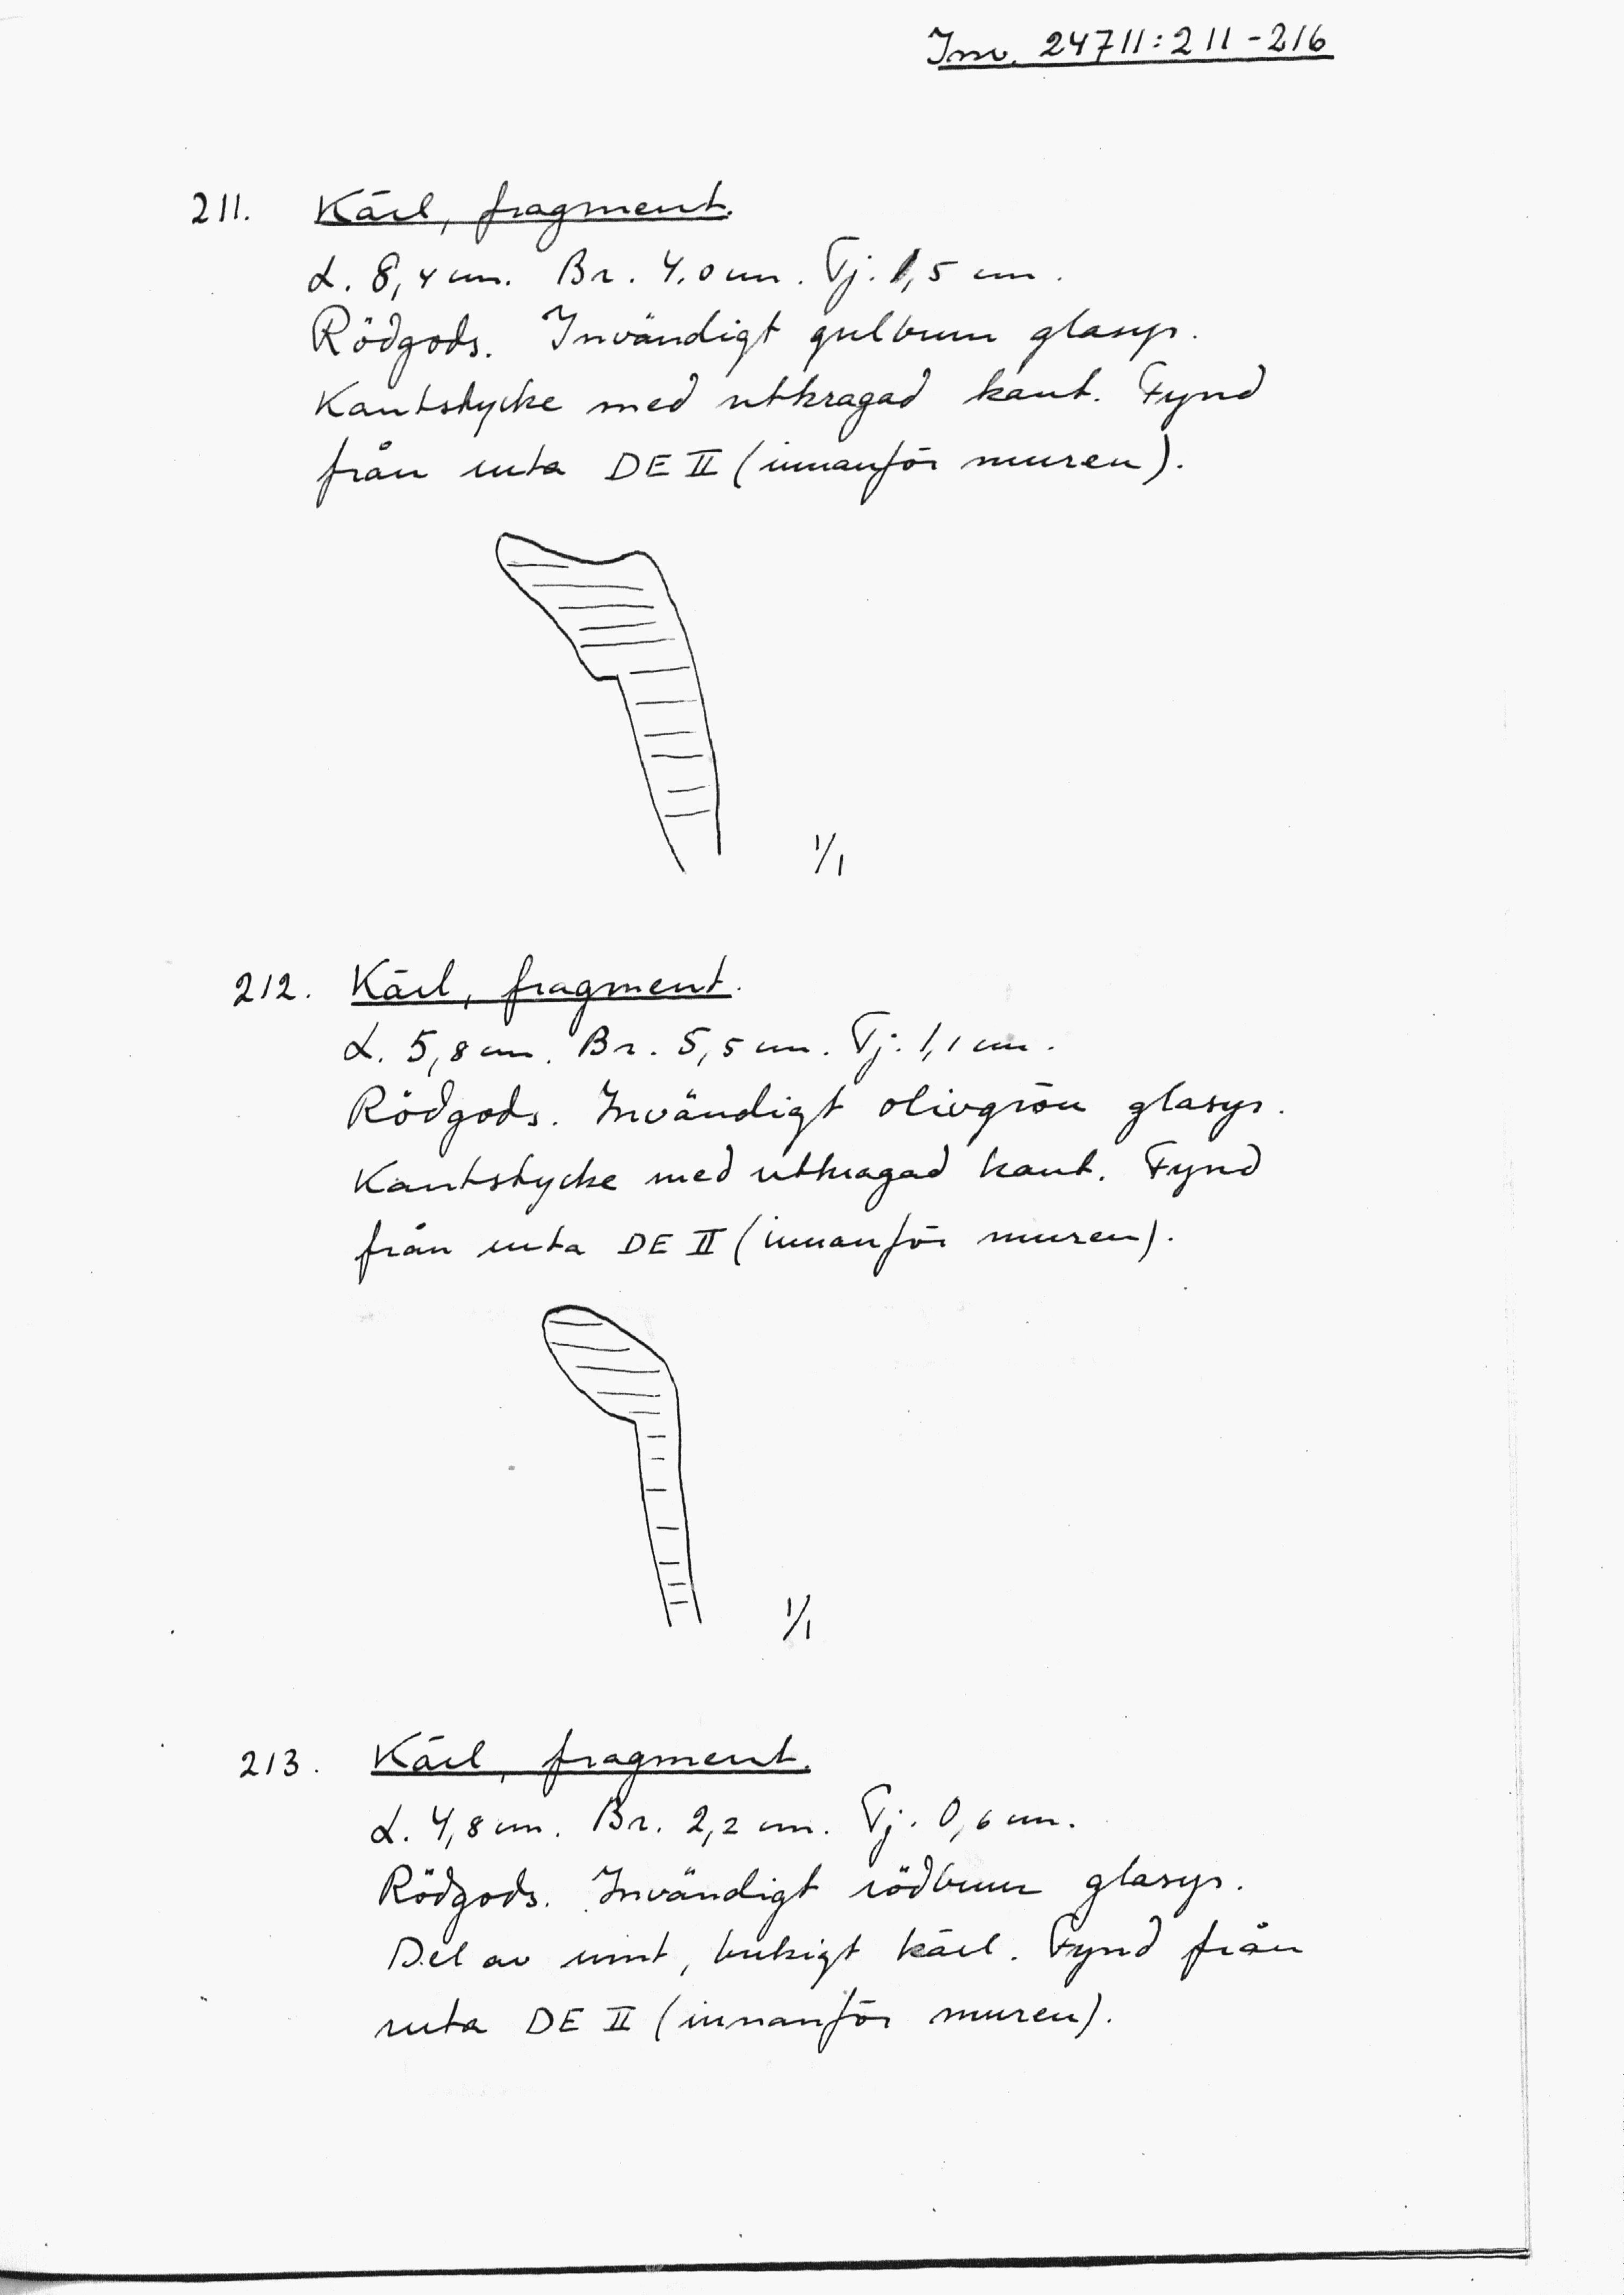 Inv. 24711:211-216
211. Kärl, fragment.
L. 8,4 cm. Br. 4,0 cm. Tj. 1,5 cm.
Rödgods. Invändigt gulbrun glasyr.
Kantstycke med utkragad kant. Fynd
från ruta DE II (innanför muren).
1/1
212. Kärl, fragment.
L. 5,8 cm. Br. 5,5 cm. Tj. 1,1 cm.
Rödgods. Invändigt olivgrön glasyr.
Kantstycke med utkragad kant. Fynd
från ruta DE II (innanför muren).
1/1
213. Kärl, fragment.
L. 4,8 cm. Br. 2,2 cm. Tj. 0,6 cm.
Rödgods. Invändigt rödbrun glasyr.
Del av runt, bukigt kärl. Fynd från
ruta DE II (innanför muren).